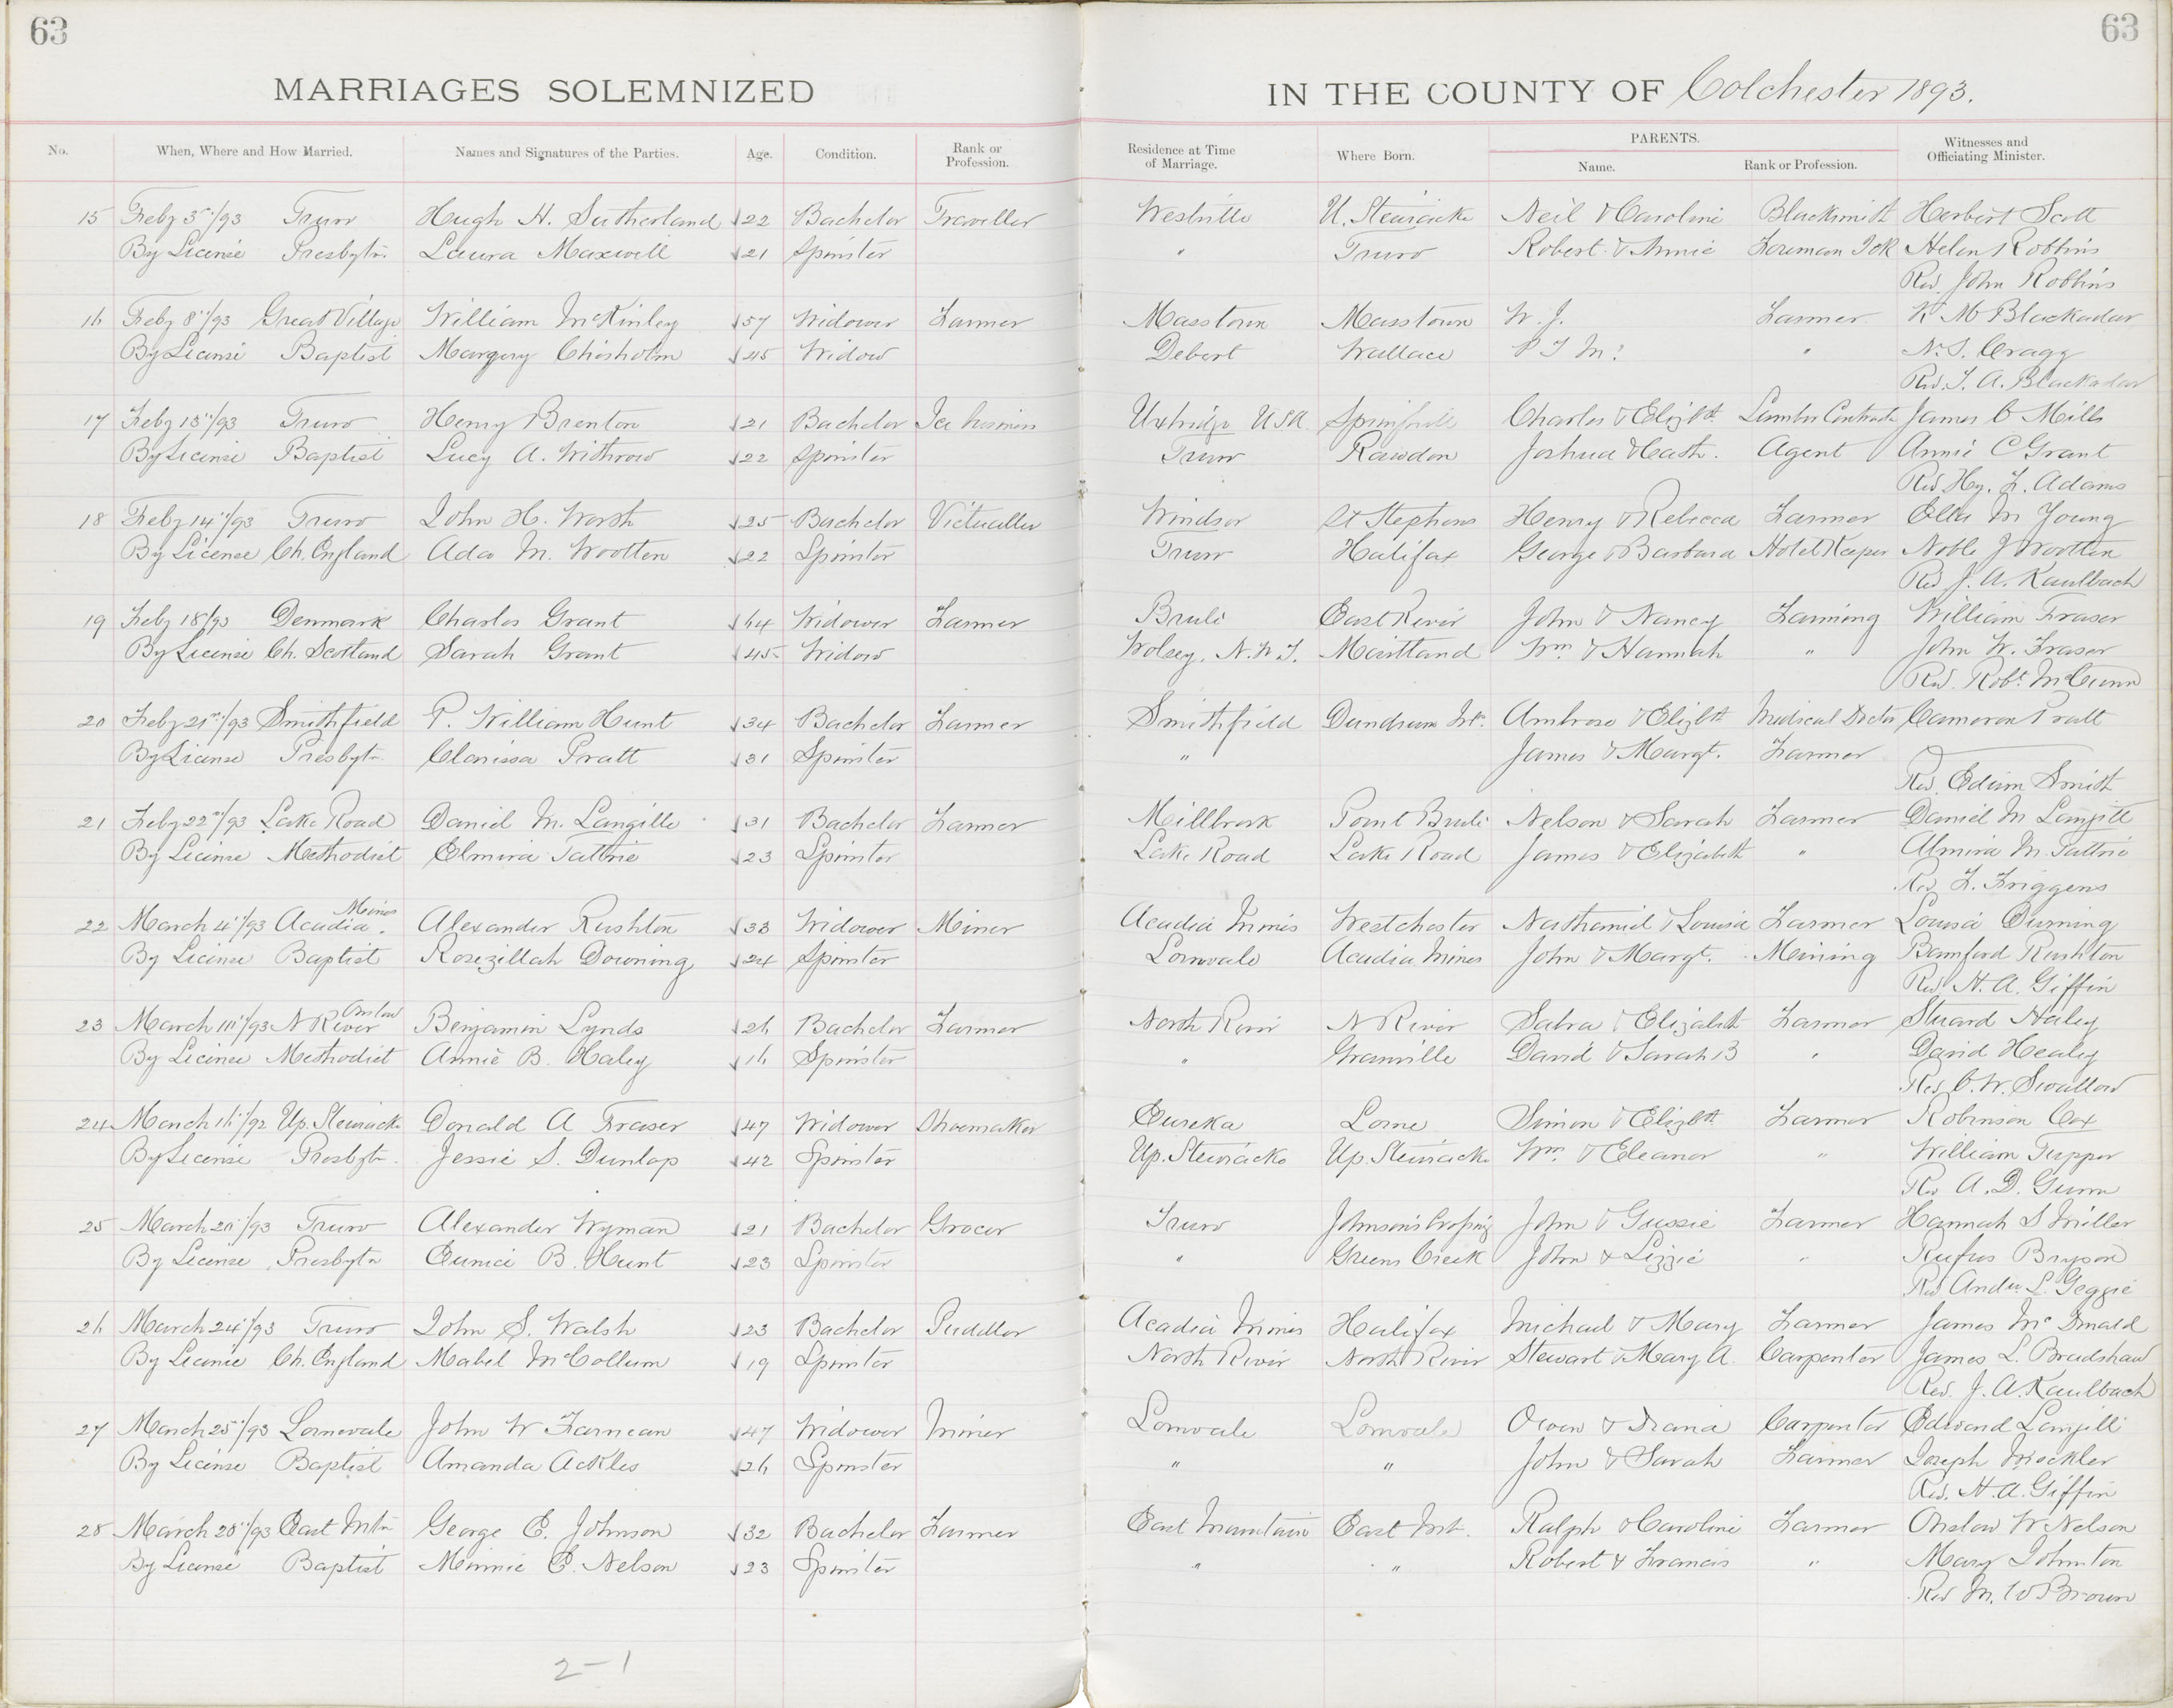 63 63
MARRIAGES SOLEMNIZED IN THE COUNTY OF Colchester 1893.
No. When, Where and How Married. Names and Signatures of the Parties. Age. Condition. Rank or Profession. Residence at Time of Marriage. Where Born. PARENTS. Name. Rank or Profession. Witnesses and Officiating Minister.
15 Feby 3rd/93 Truro Hugh H. Sutherland 22 Bachelor Traveller Westville U. Stewiacke Neil & Caroline Blacksmith Herbert Scott
By License Presbytn. Laura Maxwell 21 Spinster " Truro Robert & Annie Foreman ICR Helen Robbins
Rev. John Robbins
16 Feby 8"/93 Great Village William McKinley 57 Widower Farmer Masstown Masstown W. J. Farmer K M Blackadar
By License Baptist Margery Chisholm 45 Widow Debert Wallace " N. S. Cragg
Rev. T. A. Blackadar
17 Feby 13"/93 Truro Henry Brenton 21 Bachelor Ice business Uxbridge USA. Charles & Elizbth Lumber Contractr James C Mills
By License Baptist Lucy A. Withrow 22 Spinster Truro Rawdon Joshua & Cath. Agent Annie C Grant
Rev Hy. F. Adams
18 Feby 14"/93 Truro John H. Worsh 25 Bachelor Victualler Windsor St Stephens Henry & Rebecca Farmer Ella M Young
By License Ch. England Ada M. Wootten 22 Spinster Truro Halifax George & Barbara Hotel Keeper Noble J Wootten
Rev J. A. Kaulbach
19 Feby 18/93 Denmark Charles Grant 64 Widower Farmer Brule East River John & Nancy Farming William Fraser
By License Ch. Scotland Sarah Grant 45 Widow Wolsey, N.W.T. Maitland Wm & Hannah " John W. Fraser
Rev. Robt McCunn
20 Feby 21st/93 Smithfield P. William Hunt 34 Bachelor Farmer Smithfield Dundrum Ambrose & Elizbth Medical Doctor Cameron Pratt
By License Presbytn Clarissa Pratt 31 Spinster " James & Margt. Farmer
Rev. Edwin Smith
21 Feby 22nd/93 Lake Road Daniel M. Langille 31 Bachelor Farmer Millbrook Point Brule Nelson & Sarah Farmer Daniel M Langill
By License Methodist Elmira Tattrie 23 Spinster Lake Road Lake Road James & Elizabeth " Almira M. Tattrie
Rev. F. Friggens
22 March 4"/93 Acadia Mines Alexander Rushton 33 Widower Miner Acadia Mines Westchester Nathaniel & Louisa Farmer Louisa Durning
By License Baptist Rosizillah Downing 24 Spinster Lornvale Acadia Mines John & Margt. Mining Bamford Rushton
Rev H. A. Giffin
23 March 11"/93 N River Onslow Benjamin Lynds 26 Bachelor Farmer North River N River & Elizabeth Farmer Stuard Haley
By License Methodist Annie B. Haley 16 Spinster " Granville David & Sarah B " David Healey
Rev. C. W. Swallow
24 March 16"/92 Up. Stewiacke Donald A Fraser 47 Widower Shoemaker Eureka Lorne Simon & Elizbth Farmer Robinson Cox
By License Presbytn. Jessie S. Dunlap 42 Spinster Up. Stewiacke Up. Stewiacke Wm. & Eleanor " William Tupper
Rev A. D. Gunn
25 March 20"/93 Truro Alexander Wyman 21 Bachelor Grocer Truro Johnson's Crossing John & Gussie Farmer Hannah S Miller
By License Presbytn Eunice B. Hunt 23 Spinster " Greens Creek John & Lizzie " Rufus Bryson
Rev Andw L. Geggie
26 March 24"/93 Truro John S. Walsh 23 Bachelor Puddler Acadia Mines Halifax Michael & Mary Farmer James McDonald
By License Ch. England Mabel McCollum 19 Spinster North River North River Stewart & Mary A. Carpenter James L. Bradshaw
Rev. J. A. Kaulbach
27 March 25"/93 Lornevale John W Farnean 47 Widower Miner Lornvale Lornvale Owen & Diana Carpenter Edward Langill
By License Baptist Amanda Ackles 26 Spinster " " John & Sarah Farmer Joseph Mockler
Rev. H. A. Giffin
28 March 28"/93 East Mtn George E. Johnson 32 Bachelor Farmer East Mountain East Mt. Ralph & Caroline Farmer Onslow W Nelson
By License Baptist Minnie E. Nelson 23 Spinster " " Robert & Francis " Mary Johnston
Rev M. W Brown
2-1